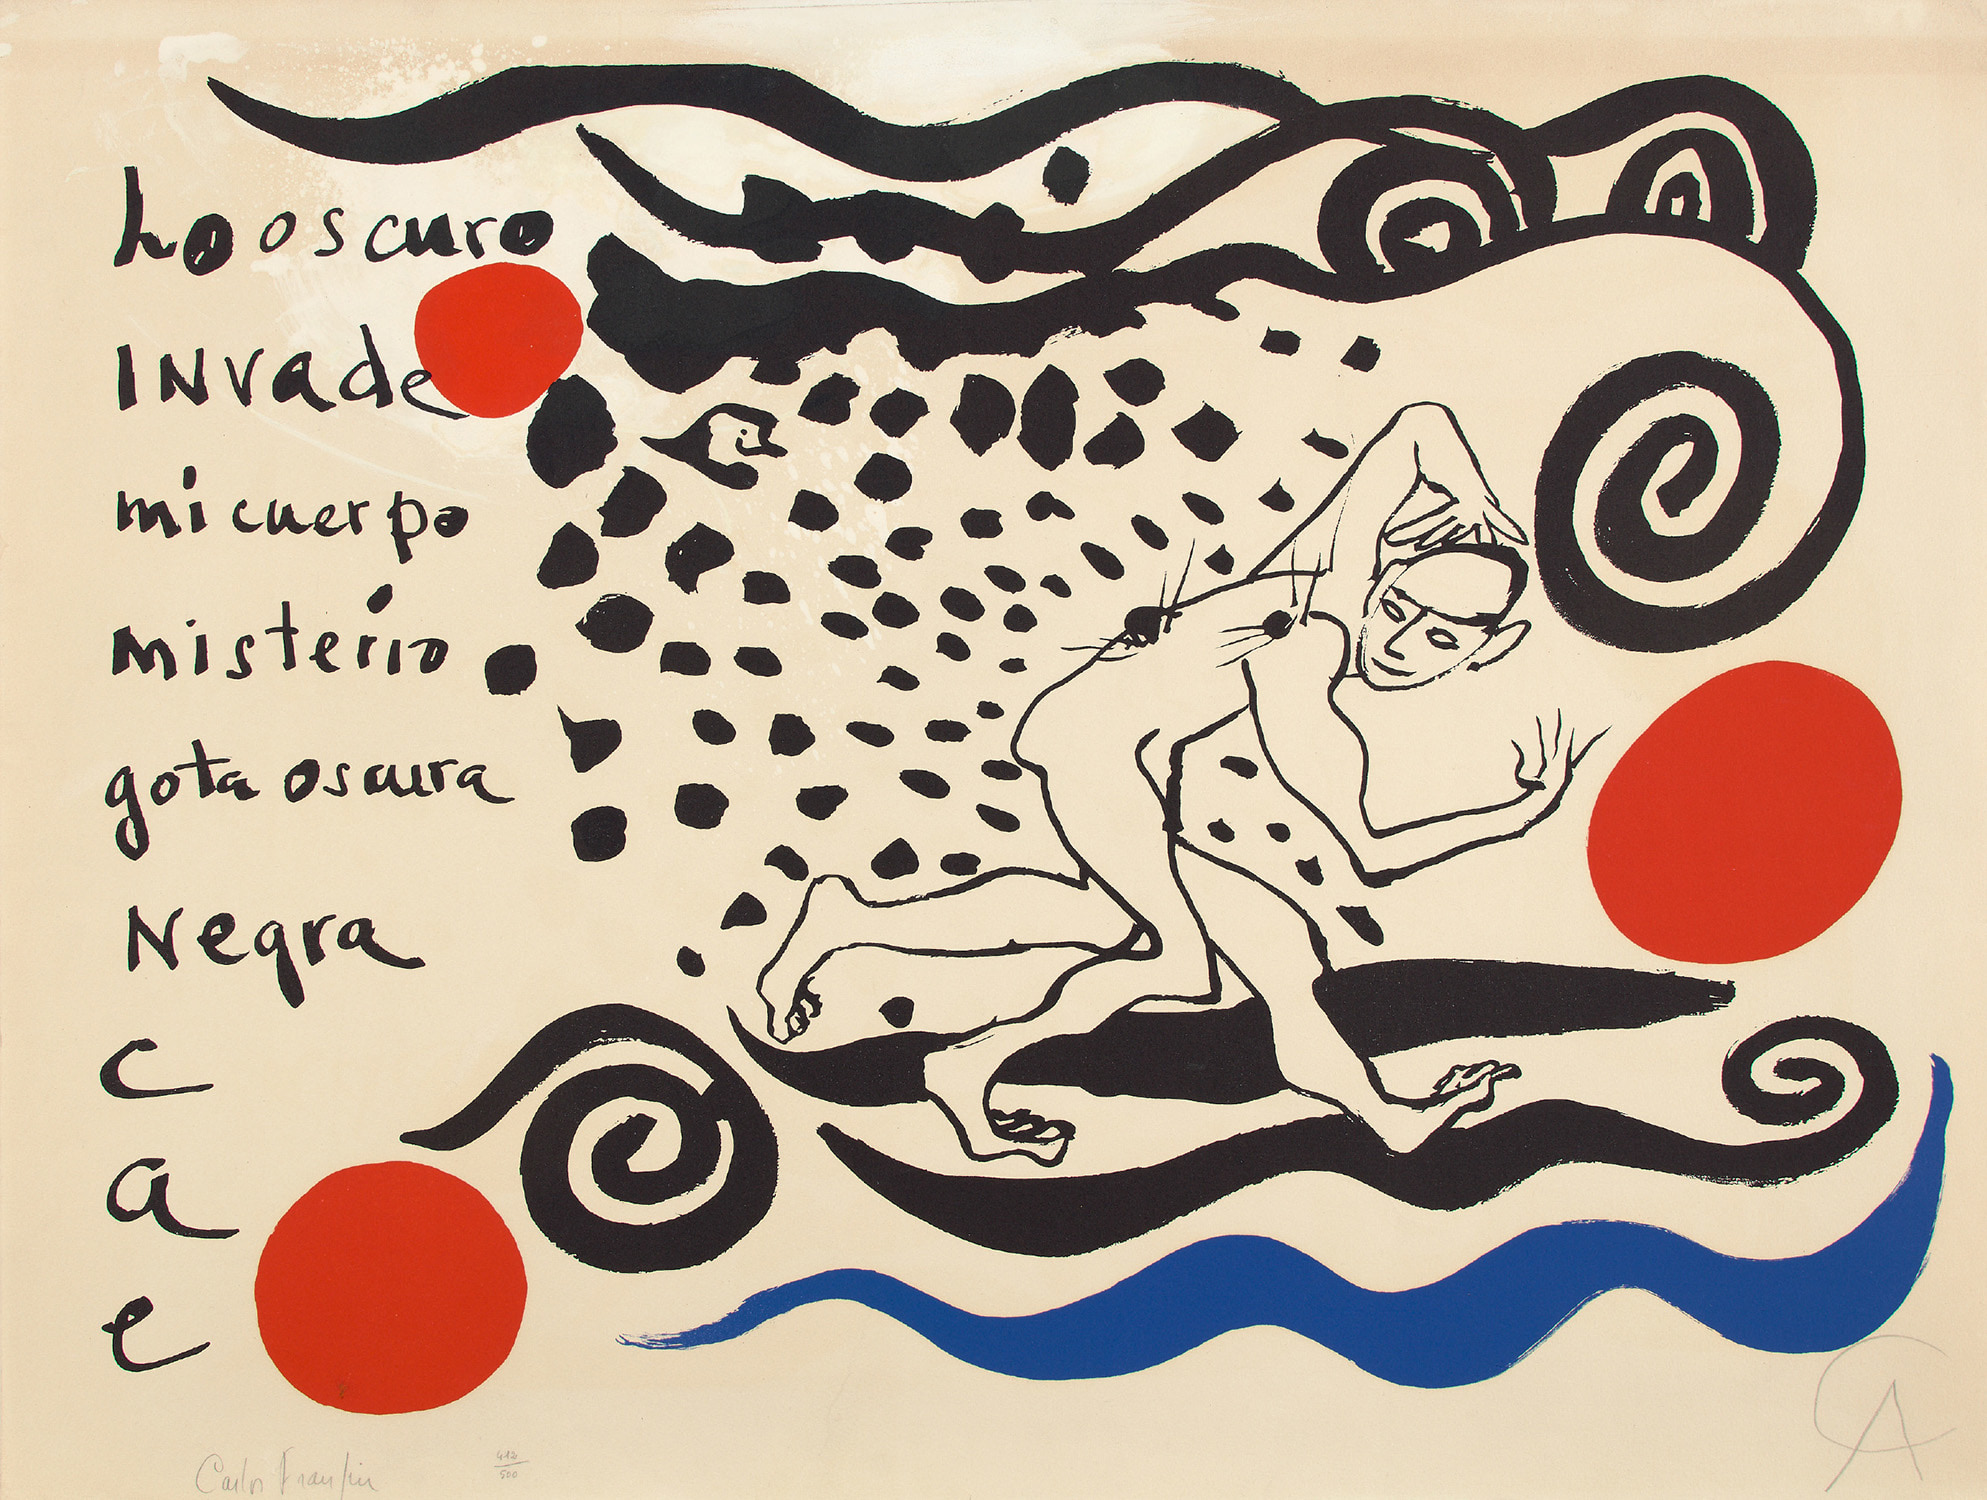 Lo oscuro
INvade
mi cuerpo
misterio
gota oscura
Negra
c
a
e
Carlos Franqui
412
500
CA